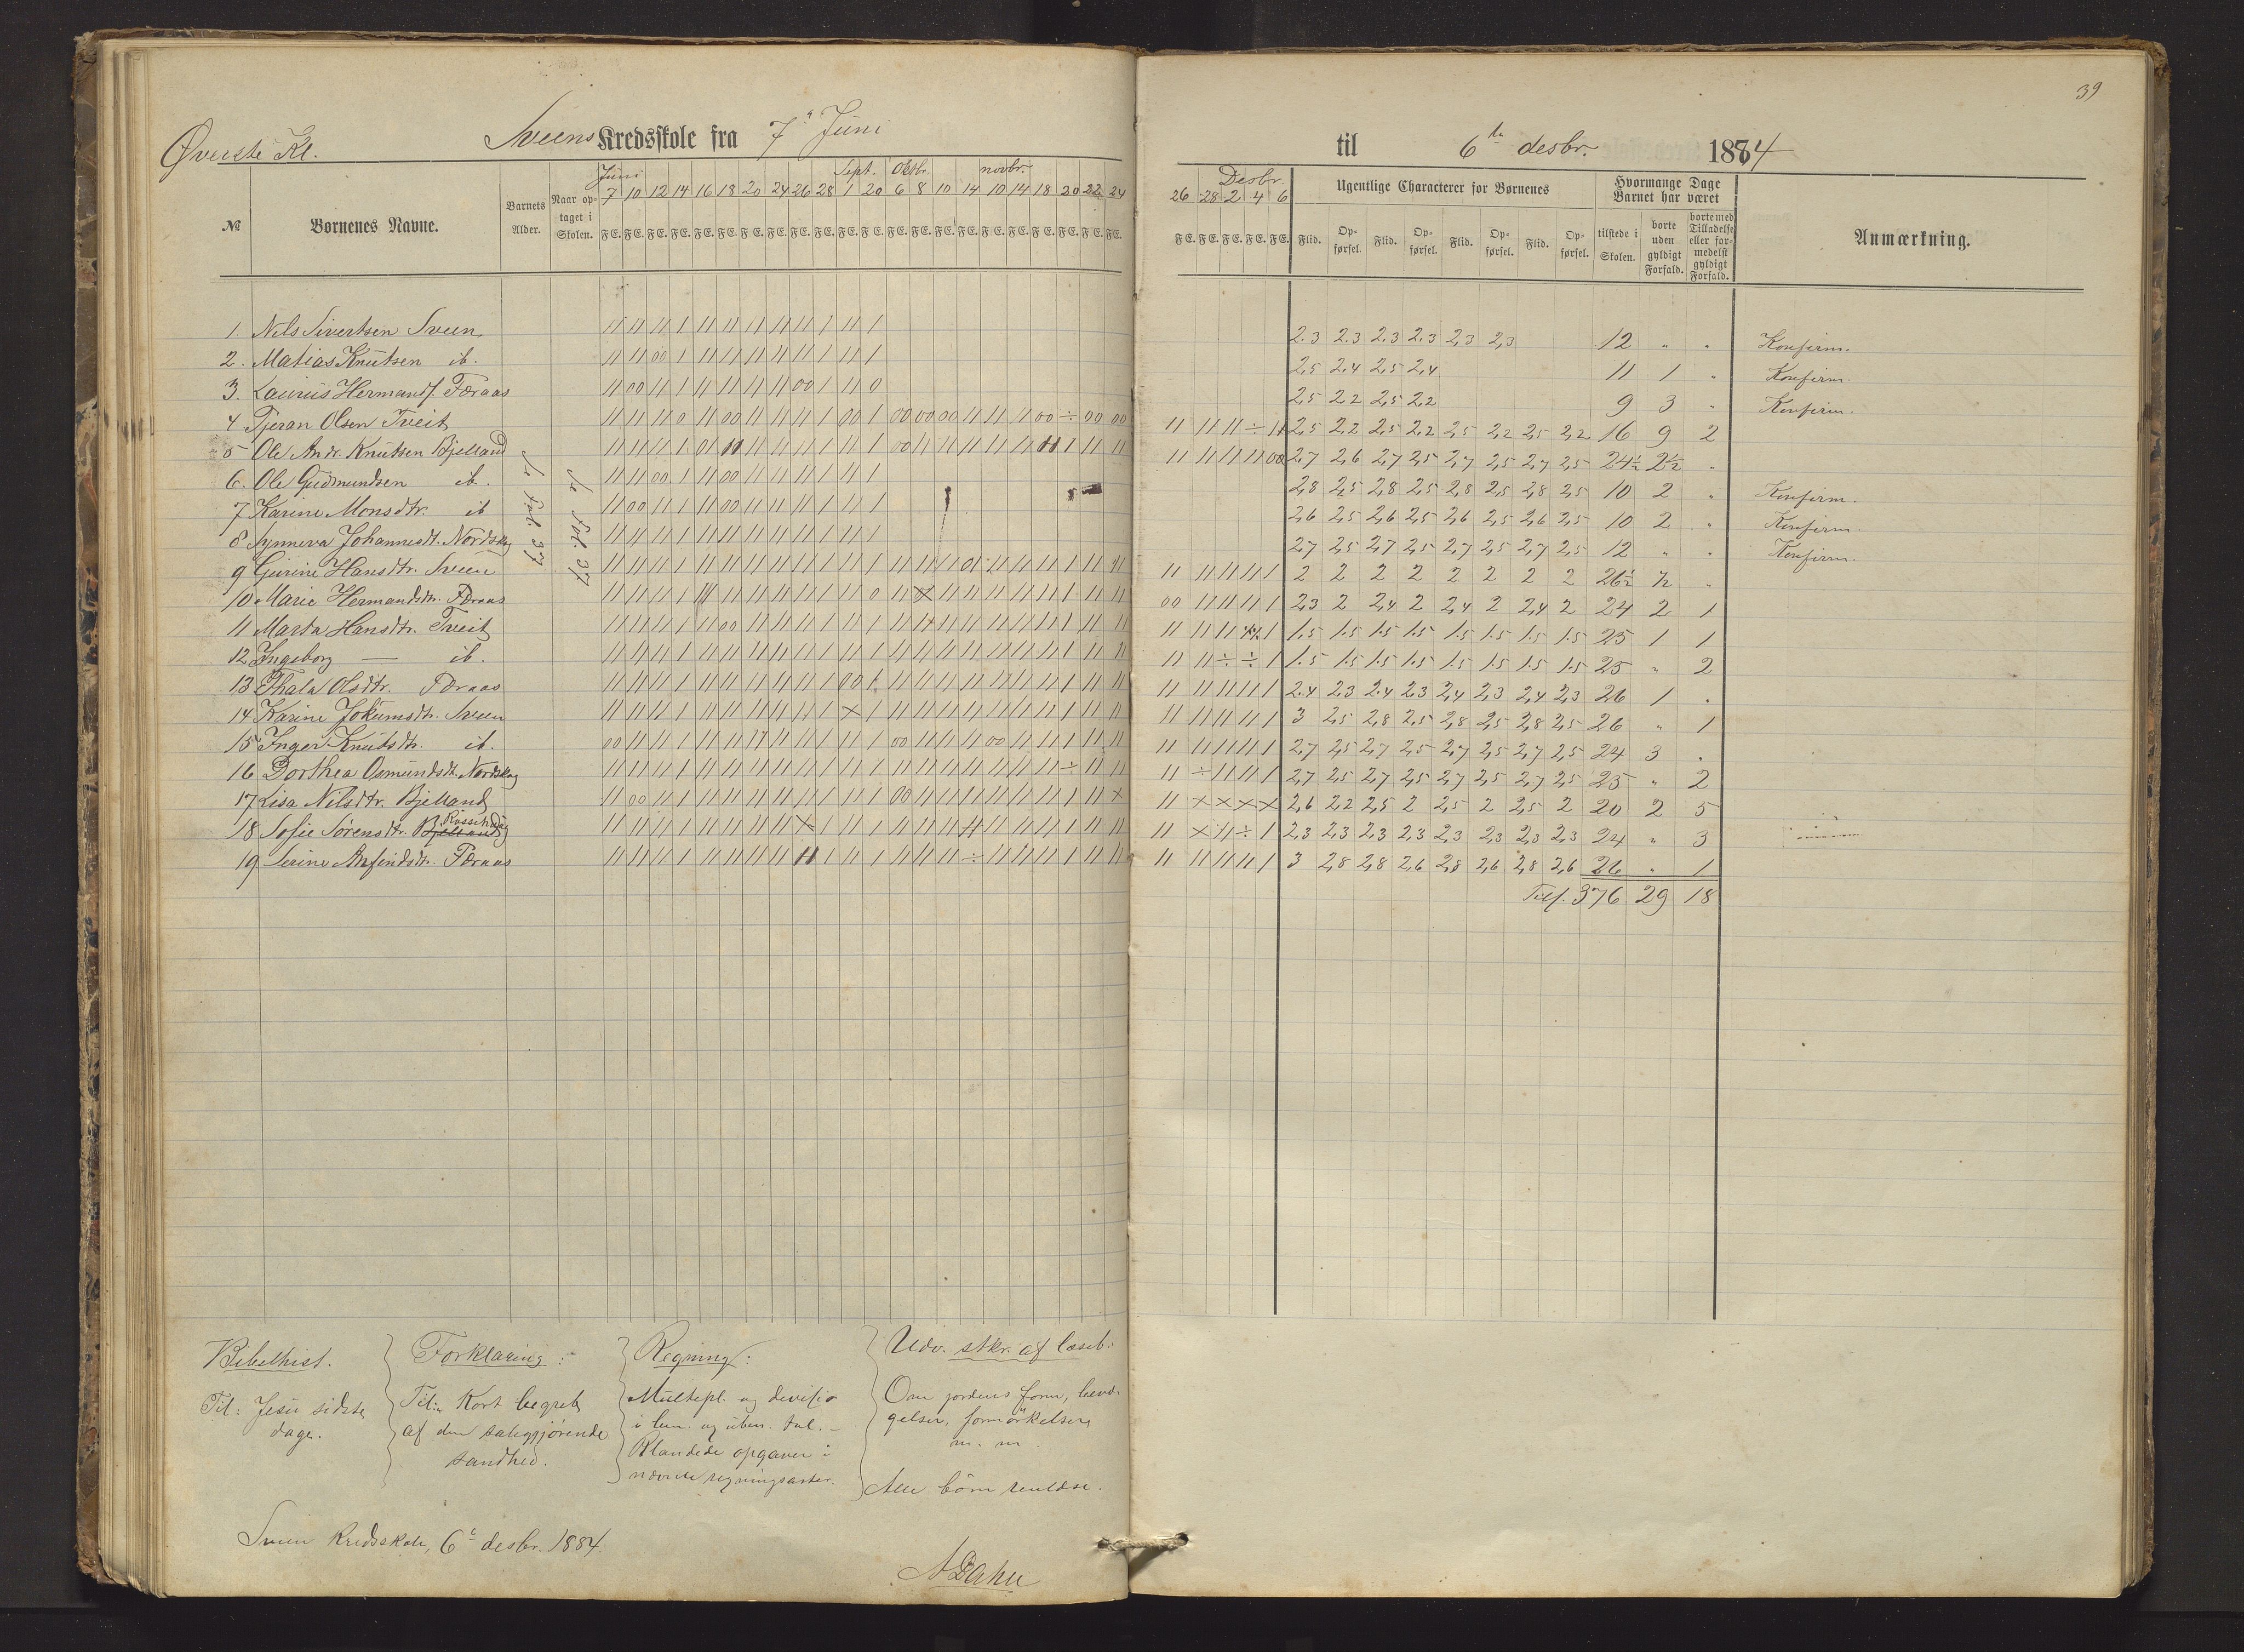 39
Øverste Kl.
Sveens Kredsskole fra 7de Juni til 6te desbr. 1884
№ Børnenes Navne. Barnets Alder. Naar optaget i Skolen.
Juni Sept. Oktbr. novbr. Desbr.
7 10 12 14 16 18 20 24 26 28 1 20 6 8 10 14 10 14 18 20 22 24 26 28 2 4 6
F E. F E. F E. F E. F E. F E. F E. F E. F E. F E. F E. F E. F E. F E. F E. F E. F E. F E. F E. F E. F E. F E. F E. F E. F E. F E. F E.
Ugentlige Characterer for Børnenes
Flid. Opførsel. Flid. Opførsel. Flid. Opførsel. Flid. Opførsel.
Hvormange Dage Barnet har været
tilstede i Skolen. borte uden gyldigt Forfald. borte med Tilladelse eller formedelst gyldigt Forfald.
Anmærkning.
1. Nils Sivertsen Sveen 2.3 2.3 2.3 2.3 2,3 2,3 12 " " Konfirm.
2. Matias Knutsen ib. 2,5 2,4 2,5 2,4 11 1 " Konfirm.
3. Laurits Hermands. Færaas 2,5 2,2 2,5 2,2 9 3 " Konfirm.
4 Tjeran Olsen Tveit 2,5 2,2 2,5 2,2 2,5 2,2 2,5 2,2 16 9 2
5 Ole Andr. Knutsen Bjelland 2,7 2,6 2,7 2,5 2,7 2,5 2,7 2,5 24½ 2½ "
6. Ole Gudmundsen ib. 2,8 2,5 2,8 2,5 2,8 2,5 2,8 2,5 10 2 " Konfirm.
7 Karine Monsdtr. ib 2,6 2,5 2,6 2,5 2,6 2,5 2,6 2,5 10 2 " Konfirm.
8 Synneva Johannesdt. Nordskog 2,7 2,5 2,7 2,5 2,7 2,5 2,7 2,5 12 " " Konfirm.
9 Gurine Hansdtr. Sveen 2 2 2 2 2 2 2 2 26½ ½ "
10 Marie Hermandsdtr. Færaas 2,3 2 2,4 2 2,4 2 2,4 2 24 2 1
11 Marta Hansdtr. Tveit 1.5 1.5 1.5 1.5 1.5 1.5 1.5 1.5 25 1 1
12 Ingeborg — ib. 1.5 1.5 1.5 1.5 1.5 1.5 1.5 1.5 25 " 2
13 Thala Olsdtr. Færaas 2.4 2,3 2.4 2,3 2,4 2,3 2,4 2,3 26 1 "
14 Karine Jokumsdtr. Sveen 3 2,5 2,8 2,5 2,8 2,5 2,8 2,5 26 " 1
15 Inger Knutsdtr. ib. 2,7 2,5 2,7 2,5 2,7 2,5 2,7 2,5 24 3 "
16 Dorthea Osmundsdt. Nordskog 2,7 2,5 2,7 2,5 2,7 2,5 2,7 2,5 25 " 2
17 Lisa Nilsdtr. Bjelland 2,6 2,2 2,5 2 2,5 2 2,5 2 20 2 5
18 Sofie Sørensdtr. Bjelland 2,3 2,3 2,3 2,3 2,3 2,3 2,3 2,3 24 " 3
19 Serine Arfindsdtr. Færaas 3 2,8 2,8 2,6 2,8 2,6 2,8 2,6 26 " 1
Se Fol. 37
Se Fol. 37
Tils. 376 29 18
Bibelhist.
Til: Jesu sidste
dage.
Forklaring:
Til: Kort begreb
af den saliggjörende
sandhed.
Regning:
Multipl. og divisio
i ben. og uben. tal. –
Blandede opgaver i
nævnte regningsarter.
Udv. stkr. af læseb:
Om jordens form, bevæ-
gelser, formörkelser,
m. m.
Alle börn renlæse.
Sveen Kredsskole, 6te desbr. 1884.